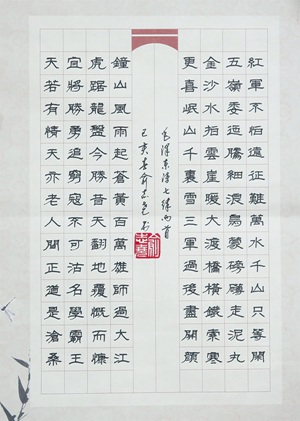 紅軍不怕遠征難萬水千山只等閑
五嶺逶迤騰細浪烏蒙磅礴走泥丸
金沙水拍雲崖暖大渡橋橫鐵索寒
更喜岷山千裏雪三軍過後盡開顏
毛澤東詩七律兩首
己亥春俞志書
鐘山風雨起蒼黃百萬雄師過大江
虎踞龍盤今勝昔天翻地覆慨而慷
宜將勝勇追窮寇不可沽名學霸王
天若有情天亦老人間正道是滄桑